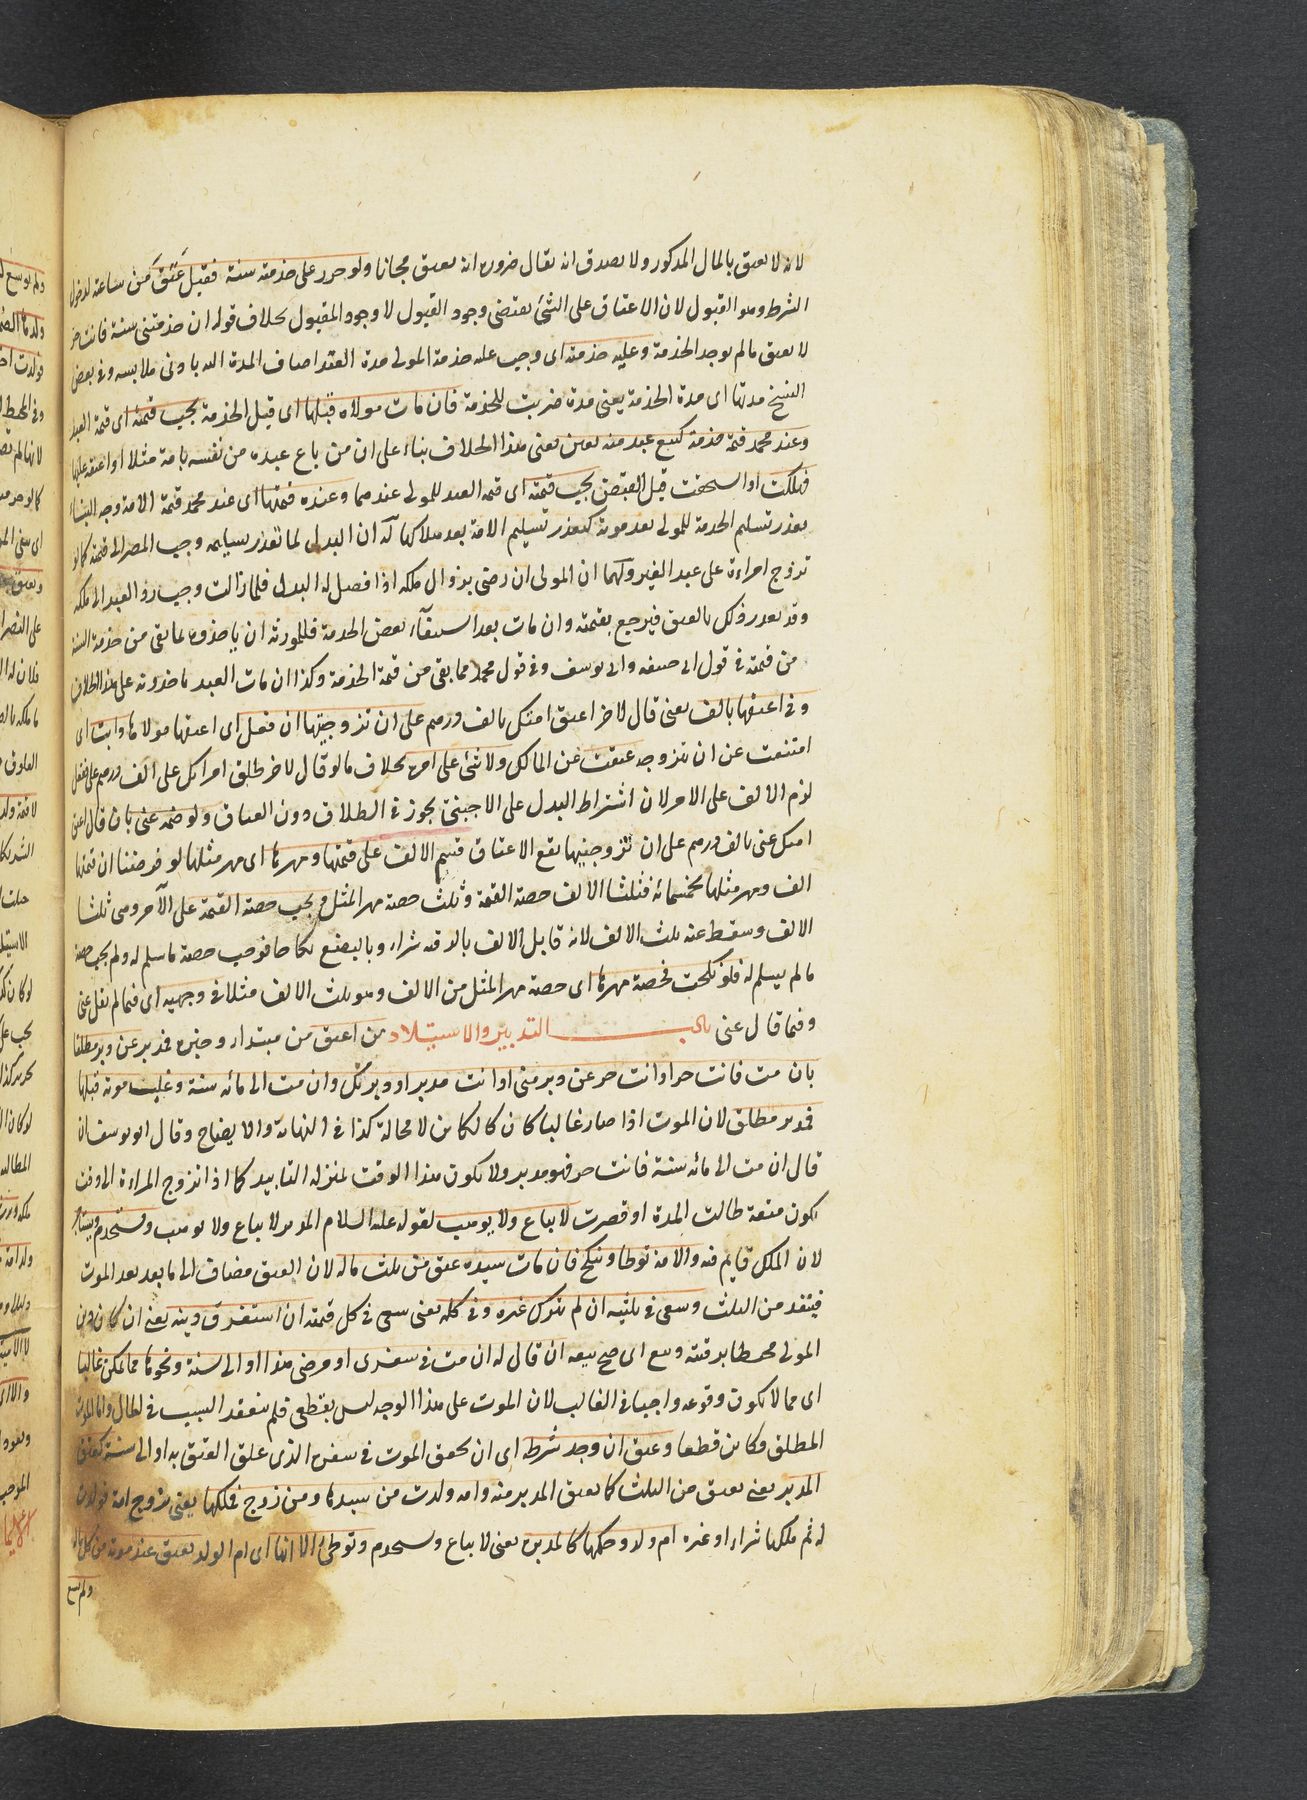 لانه لا يعتق بالمال المذكور ولا يصدق انه يقال ضرورة انه يعتق مجانا ولو حرر على خدمته سنة فقبل عَتَقَ من ساعته لوجود
الشرط وهو القبول لان الاعتاق على الشئ يقتضى وجود القبول لا وجود المقبول بخلاف قوله ان خدمتنى سنة فانت حر
لا يعتق مالم يوجد الخدمة وعليه خدمته اى وجب عليه خدمة المولى مدة العقد اضاف المدة اليه بادنى ملابسه وفى بعض
النسخ مدتها اى مدة الخدمة يعنى مدة ضربت للخدمة فان مات مولاه قبلها اى قبل الخدمة يجب قيمته اى قيمة العبد
وعند محمد قيمة خدمته كبيع عبد منه بعين يعنى هذا الخلاف بناء على ان من باع عبده من نفسه بامة مثلا او اعتقه عليها
فهلكت او استحقت قبل القبض يجب قيمته اى قيمة العبد للمولى عندهما وعنده قيمتها اى عند محمد قيمة الامة وجه البناء
تعذر تسليم الخدمة للمولى بعد موته كتعذر تسليم الامة بعد هلاكها له ان البدل لما تعذر تسليمه وجب المصير الى قيمته كما لو
تزوج امراءة على عبد الغير ولهما ان المولى ان رضى بزوال ملكه اذا حصل له البدل فلما زالت وجب رد العبد الى ملكه
وقد تعذر ذلك بالعتق فيرجع بقيمته وان مات بعد استيفاء بعض الخدمة فللورثة ان ياخذوه بما بقى من خدمة السنة
من قيمته فى قول ابى حنيفه وابى يوسف وفى قول محمد مما بقى من قيمة الخدمة وكذا ان مات العبد ماخوذ به على هذا الخلاف
وفى اعتقها بالف يعنى قال لاخر اعتق امتك بالف درهم على ان تزوجنيها ان فعل اى اعتقها مولاها وابت اى
امتنعت عن ان تتزوجه عتقت عن المالك ولا شئ على امره بخلاف ما لو قال لاخر طلق امراتك على الف درهم على ففعل
لزم الالف على الامر لان اشتراط البدل على الاجنبى يجوز فى الطلاق دون العتاق ولو ضمه عنى بان قال اعتق
امتك عنى بالف درهم على ان تزوجنيها يقع الاعتاق قسم الالف على قيمتها ومهرها اى مهر مثلها لو فرضنا ان قيمتها
الف ومهر مثلها خمسمائة فثلثا الالف حصة القيمة وثلث حصة مهر المثل ويجب حصة القيمة على الآمر وهى ثلثا
الالف وسقط عنه ثلث الالف لانه قابل الالف بالرقبة شراء وبالبضع نكاحا فوجب حصة ما سلم له ولم يجب حصة
مالم يسلم له فلو نكحت فحصة مهرها اى حصة مهر المثل من الالف وهو ثلث الالف مثلا فى وجهيه اى فيما لم يقل عنى
وفيما قال عنى باب التدبير والاستيلاد من اعتق من مبتداء وخبره فمدبر عن دبر مطلقا
بان مت فانت حر او انت حر عن دبر منى او انت مدبر او دبرتك وان مت الى مائه سنة وغلب موته قبلها
فمدبر مطلق لان الموت اذا صار غالبا كان كالكائن لا محالة كذا فى النهاية والايضاح وقال ابو يوسف ان
قال ان مت الى مائه سنة فانت حر فهو مدبر ولا يكون هذا الوقت بمنزلة التابيد كما اذا تزوج المراءة الى وقت
يكون متعة طالت المدة او قصرت لا يباع ولا يوهب لقوله عليه السلام المدبر لا يباع ولا يوهب ويستخدم ويستاجر
لان الملك قايم فيه والامة توطا وتنكح فان مات سيده عتق من ثلث ماله لان العتق مضاف الى ما بعد الموت
فينفذ من الثلث وسعى فى ثلثيه ان لم يترك غيره وفى كله يعنى سعى فى كل قيمته ان استغرق دينه يعنى ان كان دين
المولى محيطا برقبته وبيع اى صح بيعه ان قال له ان مت فى سفرى او مرضى هذا او الى سنة ونحوها مما يمكن غالبا
اى مما لا يكون وقوعه واجبا فى الغالب لان الموت على هذا الوجه ليس بقطعى فلم ينعقد السبب فى الحال واما الموت
المطلق فكائن قطعا وعتق ان وجد شرطه اى ان تحقق الموت فى سفره الذى علق العتق به او الى سنة كعتق
المدبر يعنى يعتق من الثلث كما يعتق المدبر منه وامه ولدت من سيدها ومن زوج فملكها يعنى تزوج امة فولدت
له ثم ملكها شراء او غيره ام ولد وحكمها كالمدبرة يعنى لا يباع ويستخدم وتوطئ الا انها اى ام الولد تعتق عند موته من كل ماله
ولم تسع